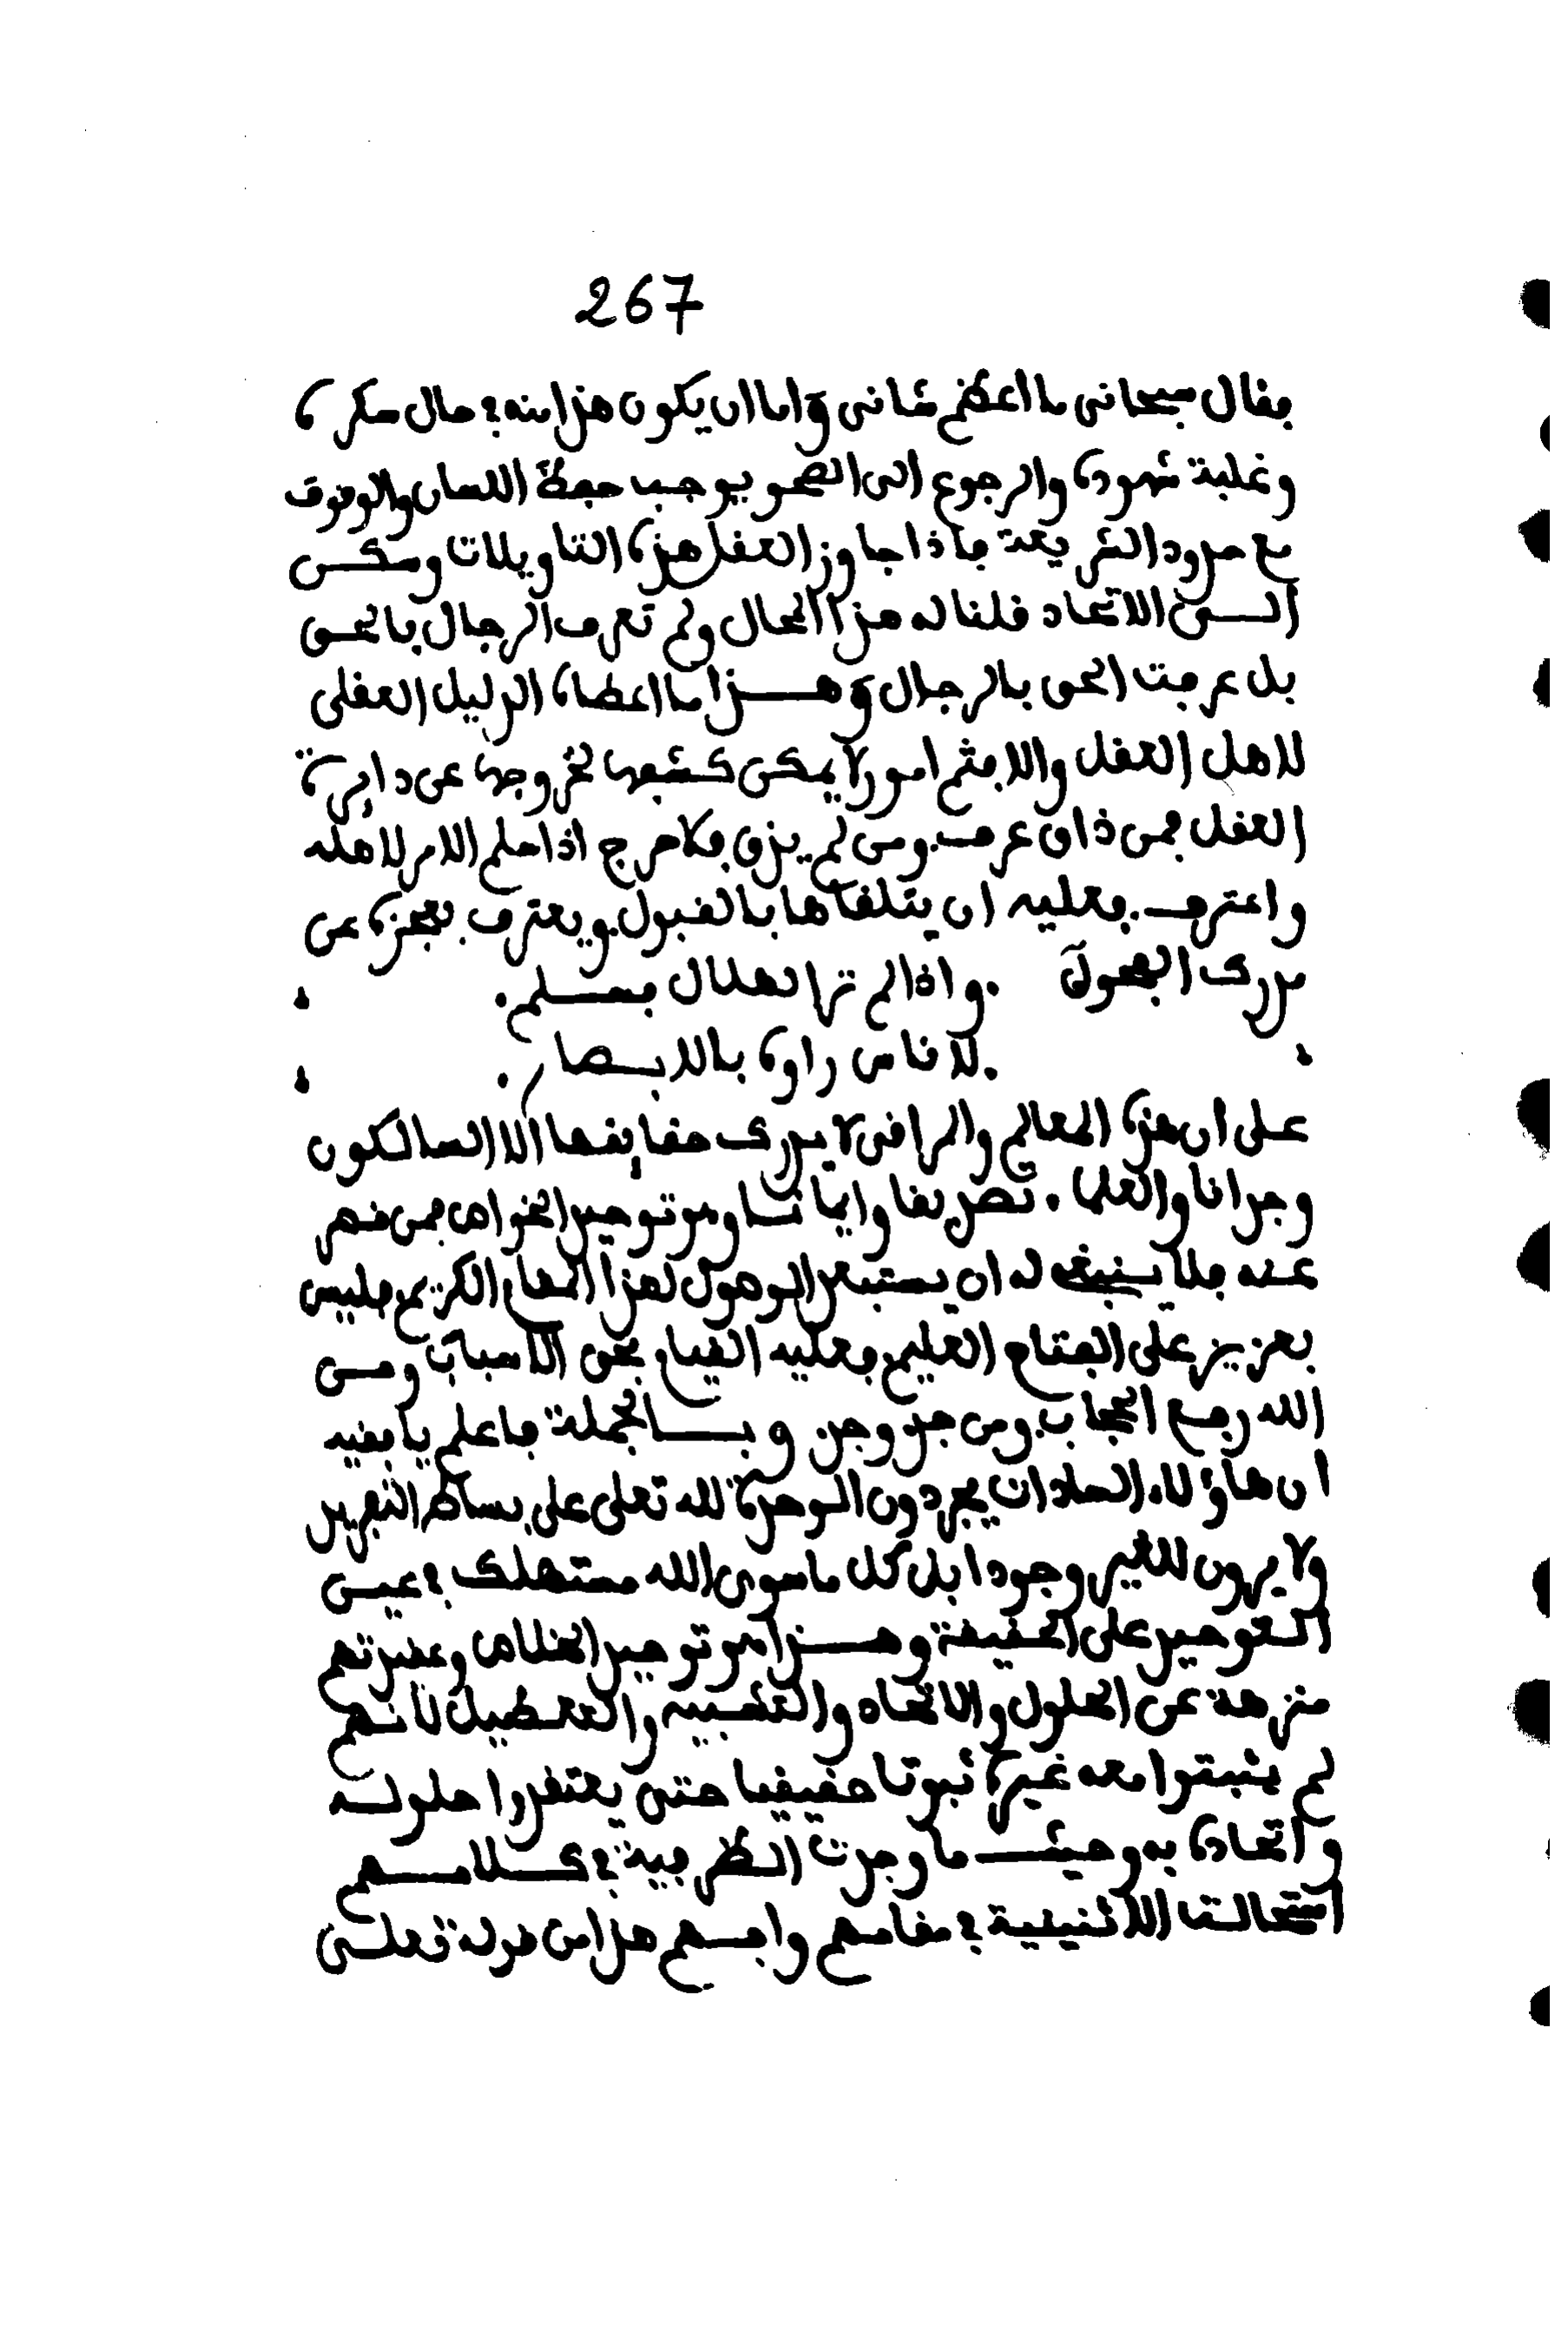 267
فقال سبحانى ما اعظم شانى واما ان يكون هذا منه في حال سكره
وغلبة شهوده والرجوع الى الصحو يوجب حفظ اللسان والوقوف
مع حدود الشريعة فاذا جاوز العقل هذه التاويلات وسكن
الى الاتحاد قلنا له هذا المحال ولم تعرف الرجال بالحق
بل عرفت الحق بالرجال وهذا ما اعطاه الدليل العقلى
لاهل العقل والا فثم امور لا يمكن كشفها لخروجها عن دايرة
العقل فمن ذاق عرف ومن لم يذق فلا حرج اذا سلم الامر لاهله
واعترف فعليه ان يتلقاها بالقبول ويعترف بعجزه عن
مدرك الفحول واذا لم تر الهلال فسلم
لاناس راوه بالابصار
على ان هذه المعالم والمراقى لا يدرك حقايقها الا السالكون
وجدانا والعلما تصديقا وايمانا وهو توحيد الخواص فمن قصر
عنه فلا ينبغى له ان يستبعد الوصول لهذا المقام الكريم فليس
بعزيز على الفتاح العليم فعليه القيام بحق الاسباب ومن
الله رفع الحجاب ومن جد وجد وبالجملة فاعلم يا فقيه
ان هاؤلاء السادات يجردون الوحدة لله تعلى على بساط التفريد
ولا يرون للغير وجودا بل كل ما سوى الله مستهلك في عين
التوحيد على الحقيقة وهذا هو توحيد الخلاص وعقيدتهم
منزهة عن الحلول والاتحاد والتشبيه والتعطيل لانهم
لم يثبتوا معه غيره ثبوتا حقيقيا حتى يعتقدوا حلوله
واتحاده به وحيث ما وجدت الظرفية في كلامهم
استحالت الاثنينية في مقامهم وافهم هذا من قوله تعلى